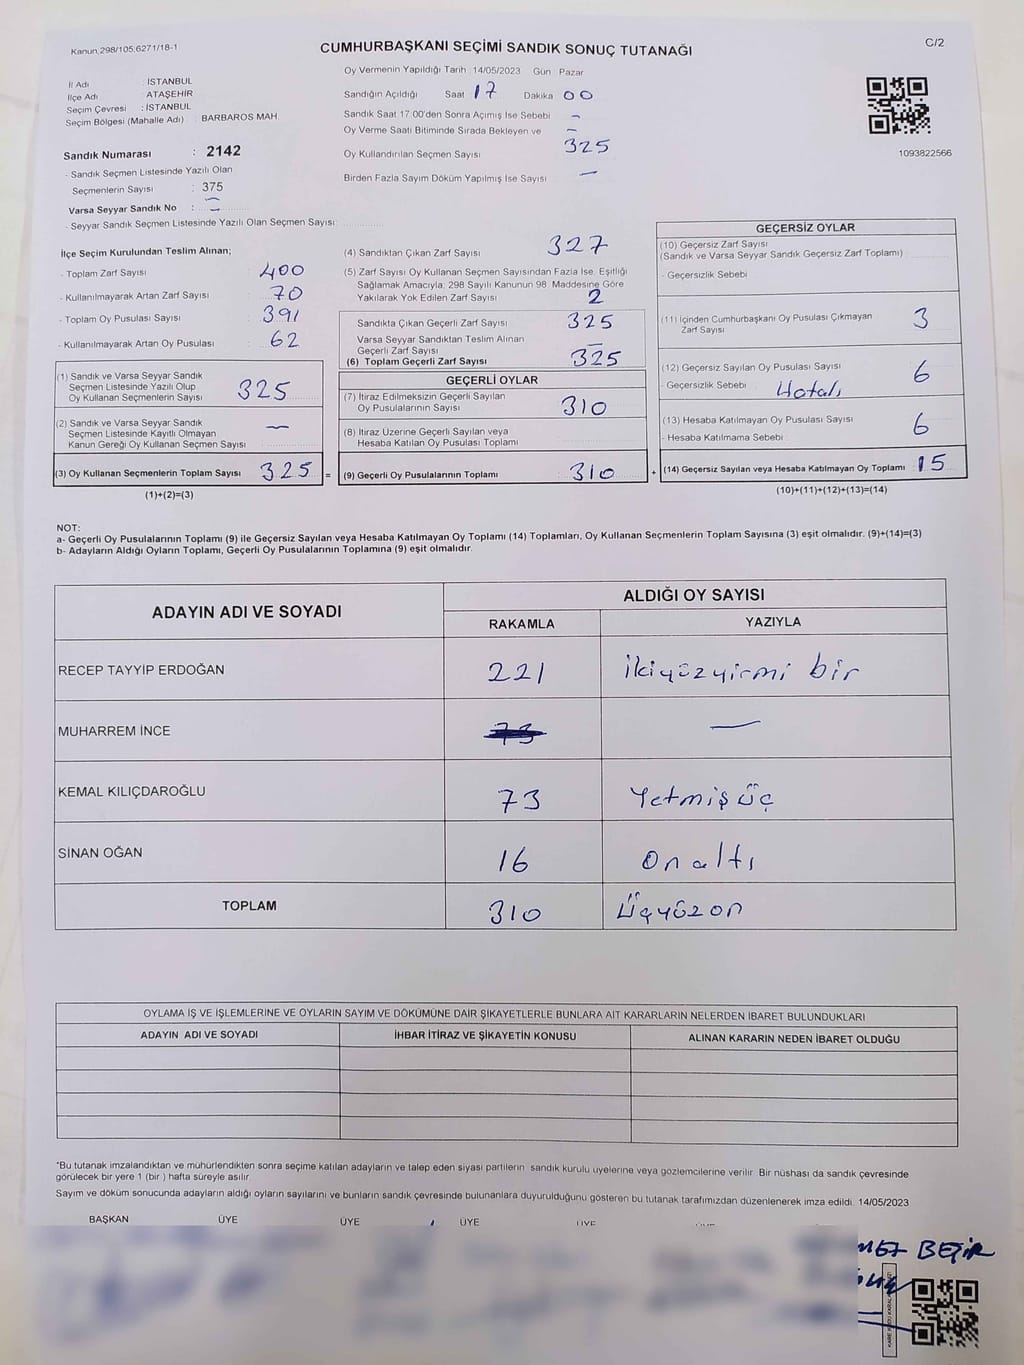 Kanun 298/105;6271/18-1
CUMHURBAŞKANI SEÇİMİ SANDIK SONUÇ TUTANAĞI
C/2
İl Adı : İSTANBUL
İlçe Adı : ATAŞEHİR
Seçim Çevresi : İSTANBUL
Seçim Bölgesi (Mahalle Adı) : BARBAROS MAH
Sandık Numarası : 2142
- Sandık Seçmen Listesinde Yazılı Olan
Seçmenlerin Sayısı : 375
Varsa Seyyar Sandık No : –
- Seyyar Sandık Seçmen Listesinde Yazılı Olan Seçmen Sayısı:
Oy Vermenin Yapıldığı Tarih : 14/05/2023 Gün : Pazar
Sandığın Açıldığı Saat 17 Dakika 00
Sandık Saat 17:00'den Sonra Açımış İse Sebebi –
Oy Verme Saati Bitiminde Sırada Bekleyen ve –
Oy Kullandırılan Seçmen Sayısı 325
Birden Fazla Sayım Döküm Yapılmış İse Sayısı –
1093822566
İlçe Seçim Kurulundan Teslim Alınan;
- Toplam Zarf Sayısı : 400
- Kullanılmayarak Artan Zarf Sayısı : 70
- Toplam Oy Pusulası Sayısı : 391
- Kullanılmayarak Artan Oy Pusulası : 62
(1) Sandık ve Varsa Seyyar Sandık
Seçmen Listesinde Yazılı Olup
Oy Kullanan Seçmenlerin Sayısı 325
(2) Sandık ve Varsa Seyyar Sandık
Seçmen Listesinde Kayıtlı Olmayan
Kanun Gereği Oy Kullanan Seçmen Sayısı –
(3) Oy Kullanan Seçmenlerin Toplam Sayısı 325 =
(1)+(2)=(3)
(4) Sandıktan Çıkan Zarf Sayısı 327
(5) Zarf Sayısı Oy Kullanan Seçmen Sayısından Fazla İse, Eşitliği
Sağlamak Amacıyla; 298 Sayılı Kanunun 98. Maddesine Göre
Yakılarak Yok Edilen Zarf Sayısı 2
Sandıkta Çıkan Geçerli Zarf Sayısı 325
Varsa Seyyar Sandıktan Teslim Alınan
Geçerli Zarf Sayısı –
(6) Toplam Geçerli Zarf Sayısı 325
GEÇERLİ OYLAR
(7) İtiraz Edilmeksizin Geçerli Sayılan
Oy Pusulalarının Sayısı 310
(8) İtiraz Üzerine Geçerli Sayılan veya
Hesaba Katılan Oy Pusulası Toplamı
(9) Geçerli Oy Pusulalarının Toplamı 310 +
GEÇERSİZ OYLAR
(10) Geçersiz Zarf Sayısı
(Sandık ve Varsa Seyyar Sandık Geçersiz Zarf Toplamı)
- Geçersizlik Sebebi
(11) İçinden Cumhurbaşkanı Oy Pusulası Çıkmayan
Zarf Sayısı 3
(12) Geçersiz Sayılan Oy Pusulası Sayısı 6
- Geçersizlik Sebebi Hatalı
(13) Hesaba Katılmayan Oy Pusulası Sayısı 6
- Hesaba Katılmama Sebebi
(14) Geçersiz Sayılan veya Hesaba Katılmayan Oy Toplamı 15
(10)+(11)+(12)+(13)=(14)
NOT:
a- Geçerli Oy Pusulalarının Toplamı (9) ile Geçersiz Sayılan veya Hesaba Katılmayan Oy Toplamı (14) Toplamları, Oy Kullanan Seçmenlerin Toplam Sayısına (3) eşit olmalıdır. (9)+(14)=(3)
b- Adayların Aldığı Oyların Toplamı, Geçerli Oy Pusulalarının Toplamına (9) eşit olmalıdır.
ADAYIN ADI VE SOYADI ALDIĞI OY SAYISI
RAKAMLA YAZIYLA
RECEP TAYYİP ERDOĞAN 221 ikiyüzyirmi bir
MUHARREM İNCE 73 –
KEMAL KILIÇDAROĞLU 73 Yetmiş üç
SİNAN OĞAN 16 on altı
TOPLAM 310 Üçyüzon
OYLAMA İŞ VE İŞLEMLERİNE VE OYLARIN SAYIM VE DÖKÜMÜNE DAİR ŞİKAYETLERLE BUNLARA AİT KARARLARIN NELERDEN İBARET BULUNDUKLARI
ADAYIN ADI VE SOYADI İHBAR İTİRAZ VE ŞİKAYETİN KONUSU ALINAN KARARIN NEDEN İBARET OLDUĞU
*Bu tutanak imzalandıktan ve mühürlendikten sonra seçime katılan adayların ve talep eden siyasi partilerin sandık kurulu üyelerine veya gözlemcilerine verilir. Bir nüshası da sandık çevresinde
görülecek bir yere 1 (bir ) hafta süreyle asılır.
Sayım ve döküm sonucunda adayların aldığı oyların sayılarını ve bunların sandık çevresinde bulunanlara duyurulduğunu gösteren bu tutanak tarafımızdan düzenlenerek imza edildi. 14/05/2023
BAŞKAN ÜYE ÜYE ÜYE ÜYE
BEŞİR